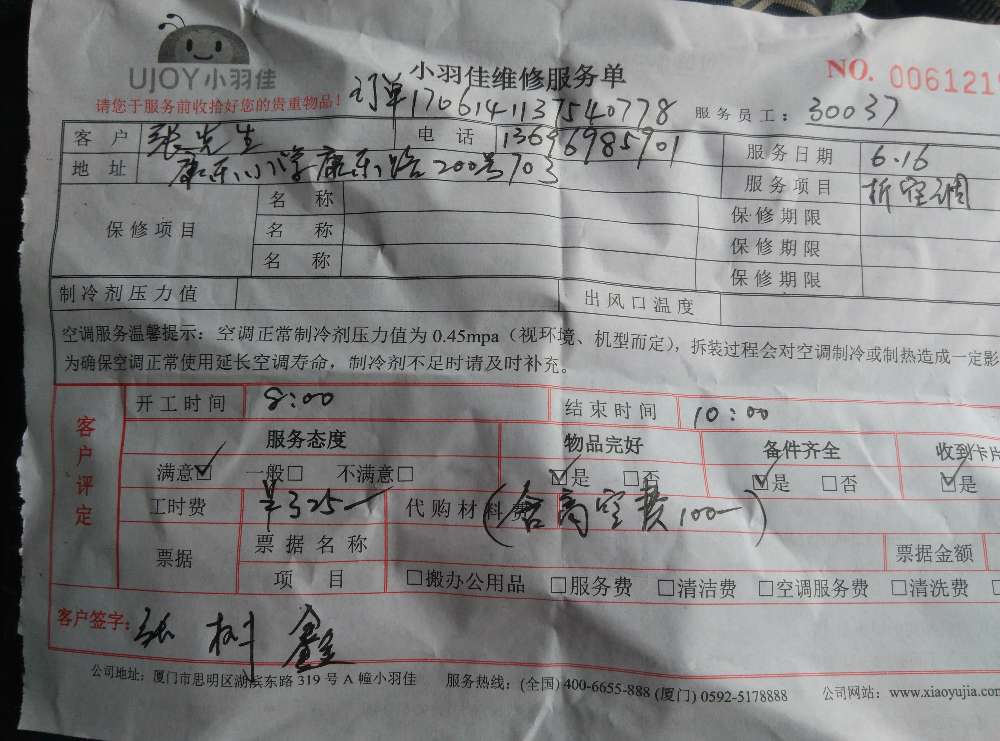 UJOY小羽佳
小羽佳维修服务单
NO. 0061219
请您于服务前收拾好您的贵重物品!
订单1706141137540778
服务员工: 30037
客户 张先生 电话 13696985901 服务日期 6.16
地址 康乐小学康乐路200号703 服务项目 拆空调
保修项目 名称 保修期限
名称 保修期限
名称 保修期限
制冷剂压力值 出风口温度
空调服务温馨提示: 空调正常制冷剂压力值为 0.45mpa (视环境、机型而定), 拆装过程会对空调制冷或制热造成一定影
为确保空调正常使用延长空调寿命, 制冷剂不足时请及时补充。
客户评定
开工时间 8:00 结束时间 10:00
服务态度 物品完好 备件齐全 收到卡片
满意☑ 一般□ 不满意□ ☑是 □否 ☑是 □否 ☑是
工时费 ¥325— 代购材料费 (含高空费100—)
票据 票据名称 票据金额
项目 □搬办公用品 □服务费 □清洁费 □空调服务费 □清洗费
客户签字: 张树鑫
公司地址: 厦门市思明区湖滨东路 319 号 A 幢小羽佳 服务热线: (全国) 400-6655-888 (厦门) 0592-5178888 公司网站: www.xiaoyujia.com